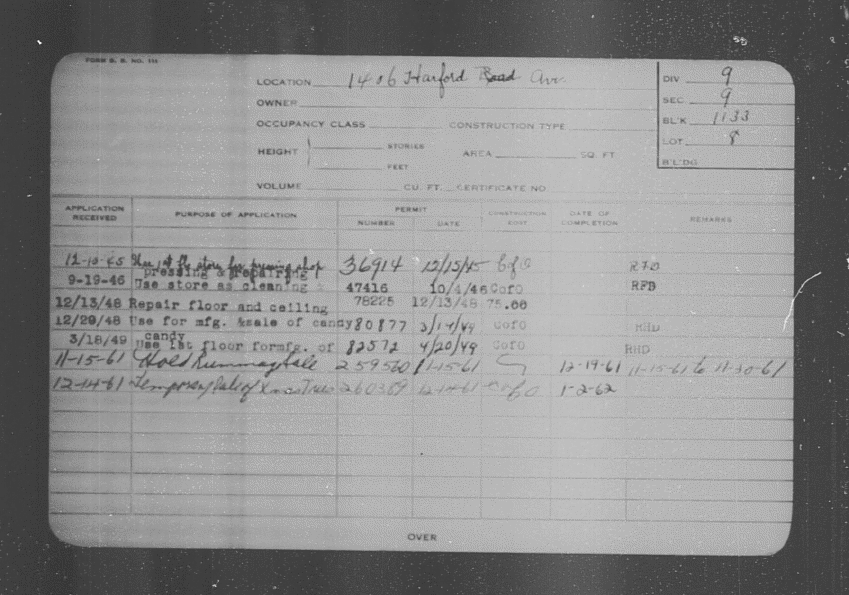 FORM B. B. NO. 114
LOCATION 1406 Harford Road Ave.
OWNER
OCCUPANCY CLASS CONSTRUCTION TYPE
HEIGHT STORIES AREA SQ. FT
FEET
VOLUME CU. FT. CERTIFICATE NO
DIV 9
SEC 9
BL'K 1133
LOT 8
B'L'DG
APPLICATION RECEIVED PURPOSE OF APPLICATION PERMIT NUMBER DATE CONSTRUCTION COST DATE OF COMPLETION REMARKS
12-10-45 Use 1st fl. store for pressing shop 36914 12/15/45 CofO RFD
pressing & repairing
9-19-46 Use store as cleaning 47416 10/4/46 CofO RFD
12/13/48 Repair floor and ceiling 78225 12/13/48 75.00
12/29/48 Use for mfg. &sale of candy 80877 3/14/49 CofO RHD
candy
3/18/49 Use 1st floor formfg. of 82572 4/20/49 CofO RHD
11-15-61 Hold Rummage Sale 259560 11-15-61 12-19-61 11-15-61 to 11-30-61
12-14-61 Temporary Sale of Xmas Trees 260369 12-14-61 CofO 1-2-62
OVER